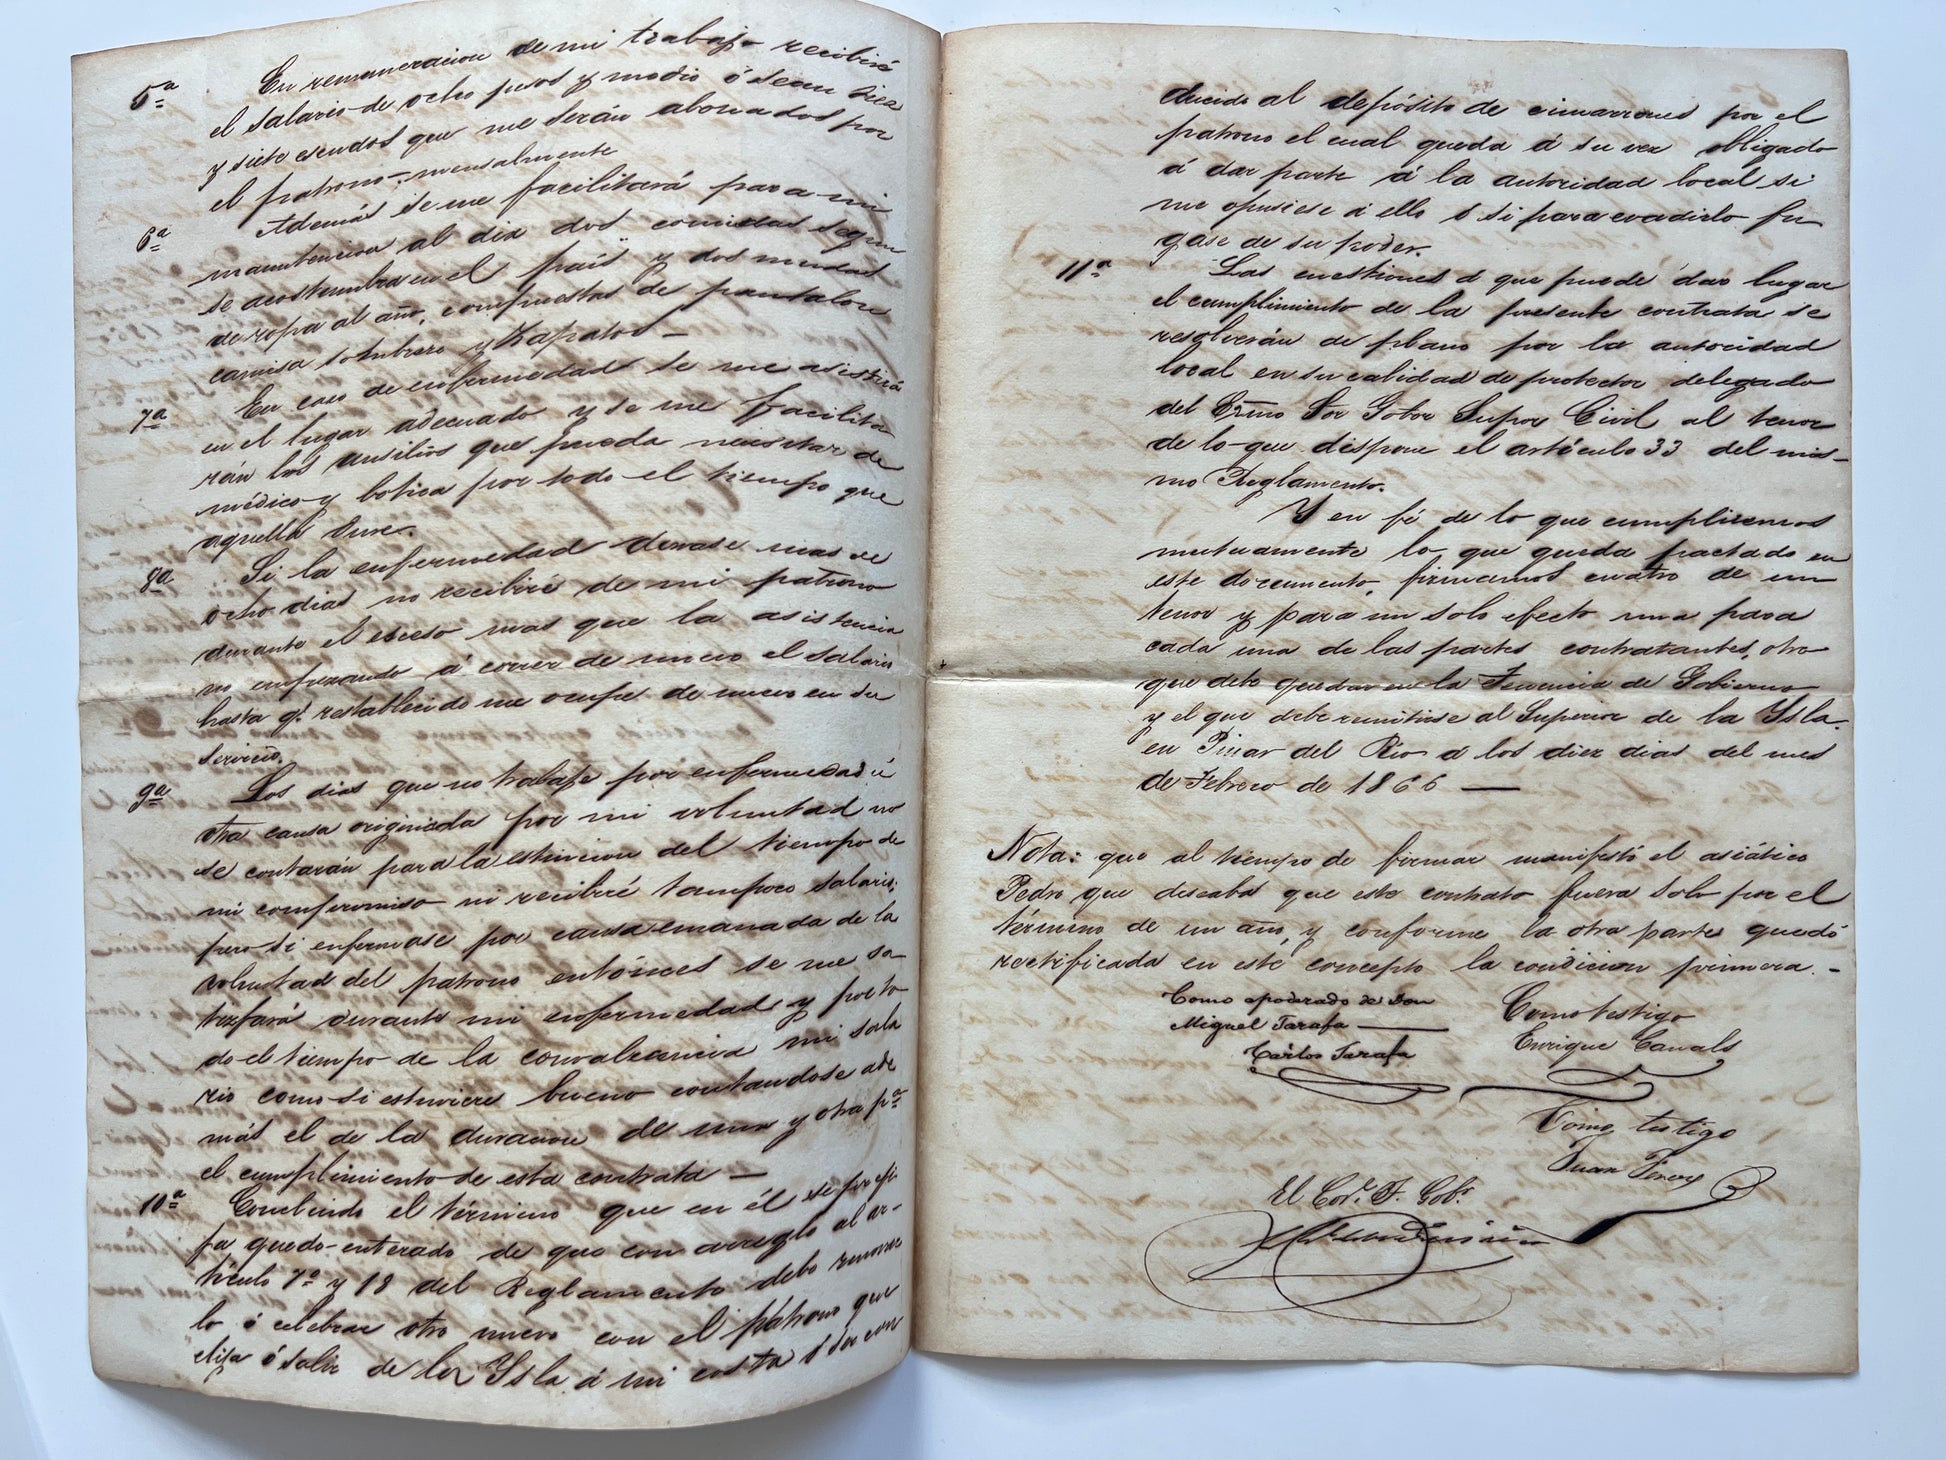 5ª En remuneracion de mi trabajo recibiré
el salario de ocho pesos y medio ó sean diez
y siete escudos que me serán abonados por
el patrono mensalmente
6ª Además se me facilitará para mi
manutencion al dia dos comidas segun
se acostumbra en el país y dos mudas
de ropa al año, compuestas de pantalon
camisa sombrero y zapatos —
7ª En caso de enfermedad se me asistirá
en el lugar adecuado y se me facilita
rán los ausilios que pueda necesitar de
médico y botica por todo el tiempo que
aquella dure.
8ª Si la enfermedad durase mas de
ocho dias no recibiré de mi patrono
durante el esceso mas que la asistencia
no empezando á correr de nuevo el salario
hasta qe restablecido me ocupe de nuevo en su
servicio.
9ª Los dias que no trabaje por enfermedad ú
otra causa originada por mi voluntad no
se contarán para la estincion del tiempo de
mi compromiso ni recibiré tampoco salario;
pero si enfermase por causa emanada de la
voluntad del patrono entónces se me sa
tisfará durante mi enfermedad y por to
do el tiempo de la convalecencia mi sala
rio como si estuviere bueno contandose ade
más el de la duracion de una y otra pª
el cumplimiento de esta contrata —
10ª Concluido el término que en él se prefi
fa quedo enterado de que con arreglo al ar-
tículo 7º y 18 del Reglamento debo renovar
lo ó celebrar otro nuevo con el patrono que
elija ó salir de la Ysla á mi costa ó ser con
ducido al depósito de cimarrones por el
patrono el cual queda á su vez obligado
á dar parte á la autoridad local si
me opusiese á ello ó si para evadirlo fu
gase de su poder.
11ª Las cuestiones á que puede dar lugar
el cumplimiento de la presente contrata se
resolverán de plano por la autoridad
local en su calidad de protector delegado
del Ecmo Sor Gobor Supor Civil al tenor
de lo que dispone el artículo 33 del mis-
mo Reglamento.
Y en fé de lo que cumpliremos
mutuamente lo que queda pactado en
este documento, firmamos cuatro de un
tenor y para un solo efecto una para
cada una de las partes contratantes, otro
que debe quedar en la Tenencia de Gobierno
y el que debe remitirse al Superior de la Ysla.
en Pinar del Rio á los diez dias del mes
de Febrero de 1866 —
Nota: que al tiempo de firmar manifestó el asiático
Pedro que deseaba que este contrato fuera solo por el
término de un año, y conforme la otra parte quedó
rectificada en este concepto la condicion primera. -
Como apoderado de Don
Miguel Tarafa —
Carlos Tarafa
Como testigo
Enrique Canals
Como testigo
Juan Perez
El Corl. T. Gobr.